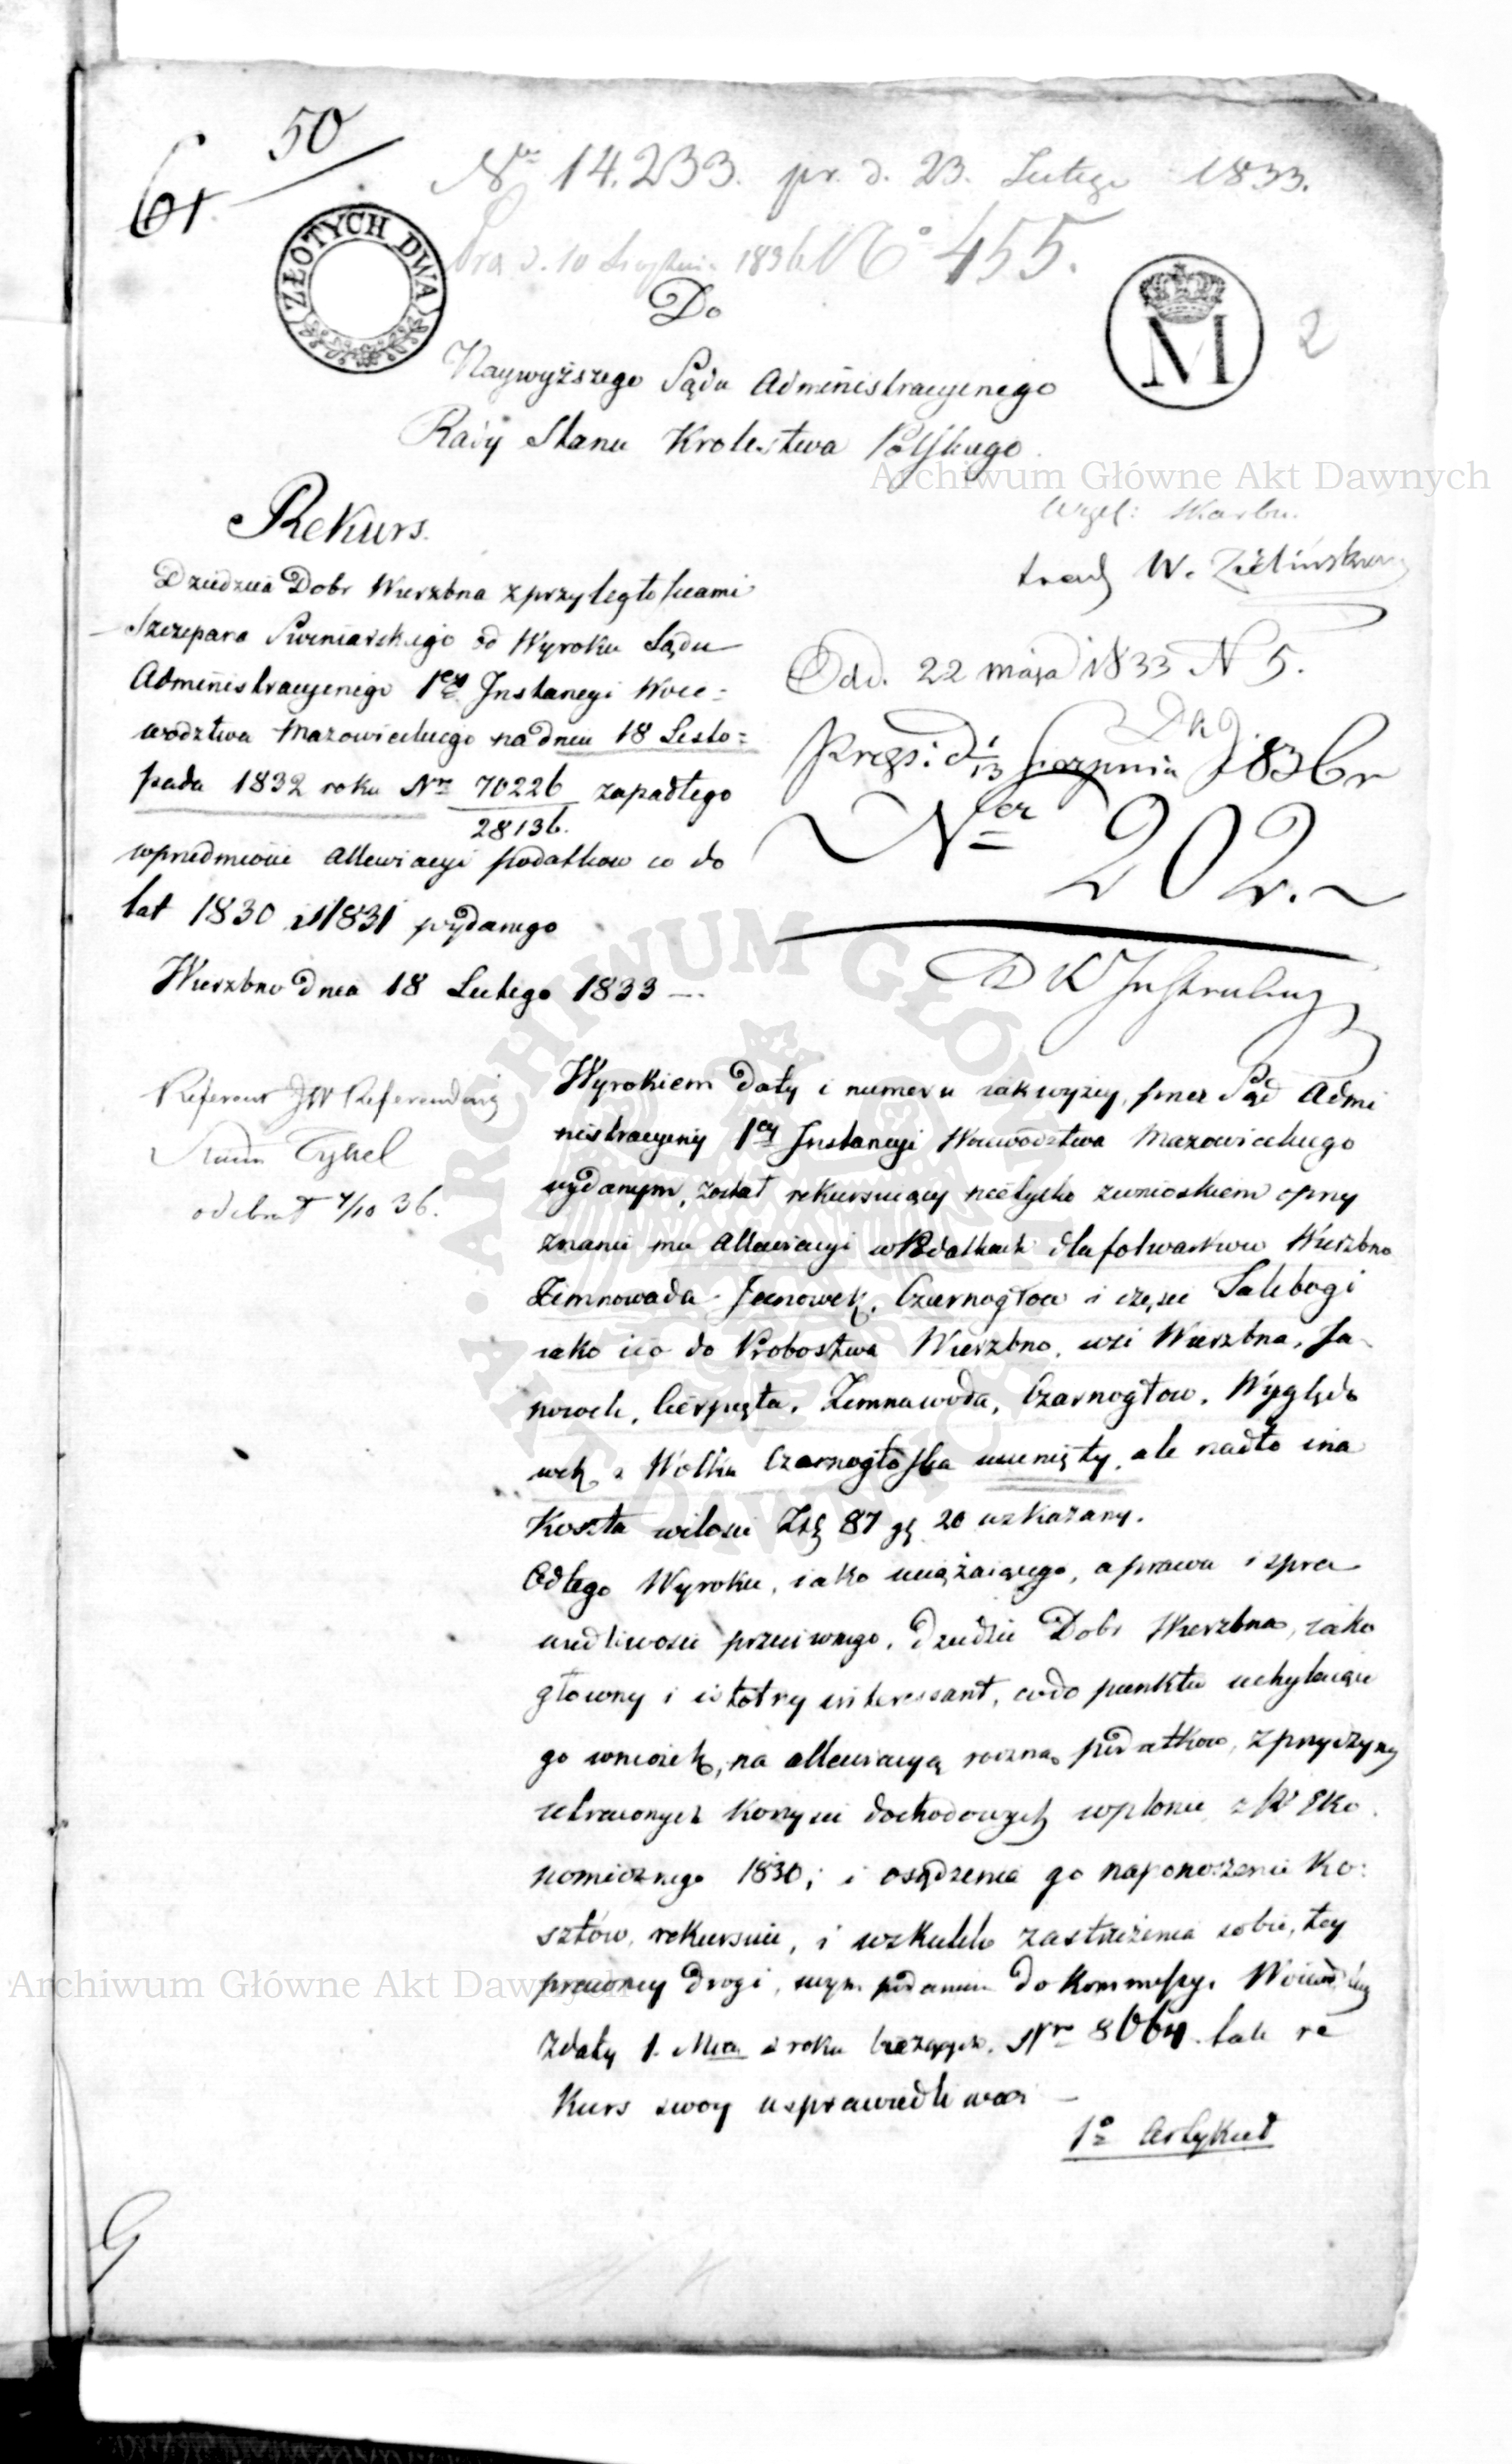 50
61
Nr 14.233. pr. d. 23. Lutego 1833.
ZŁOTYCH DWA
pra d. 10 1836 No 455.
M
2
Do
Naywyższego Sądu Administracyinego
Rady Stanu Krolestwa Polskiego.
Archiwum Główne Akt Dawnych
Rekurs.
Dziedzica Dobr Wierzbna z przyległościami
Szczepana Swiniarskiego od Wyroku Sądu
Administracyinego 1ey Instancyi Woie=
wodztwa Mazowieckiego na dniu 18 Listo=
pada 1832 roku Nr 70226 zapadłego
28136.
w przedmiocie allewiacyi podatkow co do
lat 1830 i 1831 wydanego
Wierzbno dnia 18 Lutego 1833 —
Skarbu.
W. Zielińskiemu
Odd. 22 maja 1833 N 5.
Prezs: d 1/13 Sierpnia 1836 r
Ner 202.
Referent JW Referendarz
Stanu Tykel
odebrał 7/10 36.
Wyrokiem daty i numeru iak wyżey, przez Sąd Admi
nistracyiny 1ey Instancyi Woiewodztwa Mazowieckiego
wydanym, został rekursuiący nietylko z wnioskiem o przy
znanie mu allewiacyi w Podatkach dla folwarkow Wierzbno
Zimnowada Janowek, Czarnogłow i części Salebogi
iako i co do Probostwa Wierzbno, wsi Wierzbna, Ja
nowek, Cierpięta, Zimnawoda, Czarnogłow, Wyględo
wek i Wolka Czarnogłoska usunięty, ale nadto i na
Koszta w ilości Złp 87 gr 20 wskazany.
Od tego Wyroku, iako uciążaiącego, a prawu i spra
wiedliwości przeciwnego, dziedzic Dobr Wierzbna, iako
głowny i istotny interessant, co do punktu uchylaiące
go wniosek, na allewiacyą roczną podatkow, z przyczyny
utraconych korzyści dochodowych w plonie z R Eko
nomicznego 1830; i osądzenia go na ponoszenie Ko:
sztów, rekursuie, i w skutek zastrzeżenia sobie, tey
prawney drogi, swym podaniem do Kommissyi Woiewodzkiey
Archiwum Główne Akt Dawnych
z daty 1. Mca i roku bieżących. Nr 8064 tak re
kurs swoy usprawiedliwia —
1o Artykuł